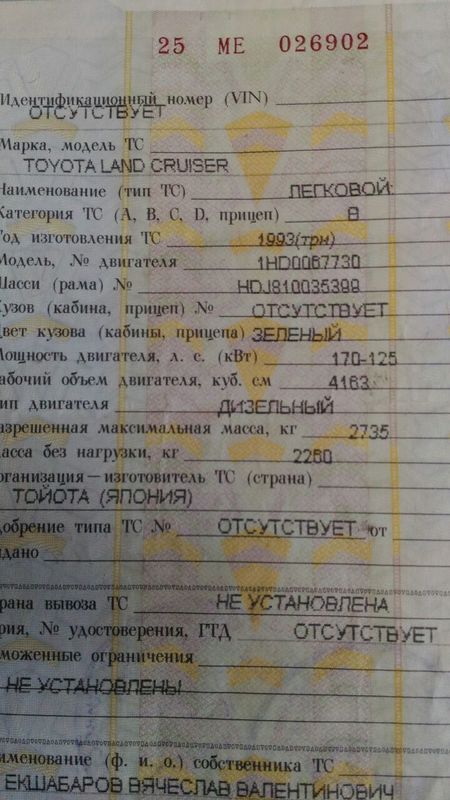 25 МЕ 026902
Идентификационный номер (VIN)
ОТСУТСТВУЕТ
Марка, модель ТС
TOYOTA LAND CRUISER
Наименование (тип ТС) ЛЕГКОВОЙ
Категория ТС (A, B, C, D, прицеп) B
Год изготовления ТС 1993(трн)
Модель, № двигателя 1HD0067730
Шасси (рама) № HDJ810035399
Кузов (кабина, прицеп) № ОТСУТСТВУЕТ
Цвет кузова (кабины, прицепа) ЗЕЛЕНЫЙ
Мощность двигателя, л. с. (кВт) 170-125
абочий объем двигателя, куб. см 4163
ип двигателя ДИЗЕЛЬНЫЙ
азрешенная максимальная масса, кг 2735
асса без нагрузки, кг 2260
рганизация—изготовитель ТС (страна)
ТОЙОТА (ЯПОНИЯ)
добрение типа ТС № ОТСУТСТВУЕТ от
дано
рана вывоза ТС НЕ УСТАНОВЛЕНА
рия, № удостоверения, ГТД ОТСУТСТВУЕТ
моженные ограничения
НЕ УСТАНОВЛЕНЫ
именование (ф. и. о.) собственника ТС
ЕКШАБАРОВ ВЯЧЕСЛАВ ВАЛЕНТИНОВИЧ